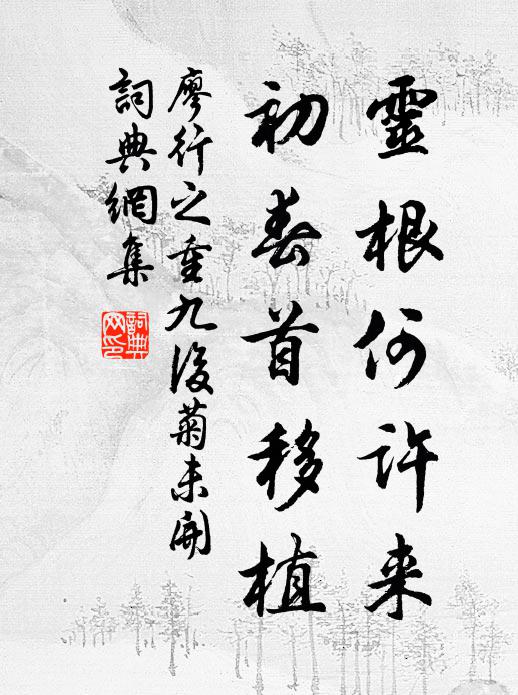 靈根何許来
初春首移植
廖行之重九後菊未開
詞典網集
詞典網印